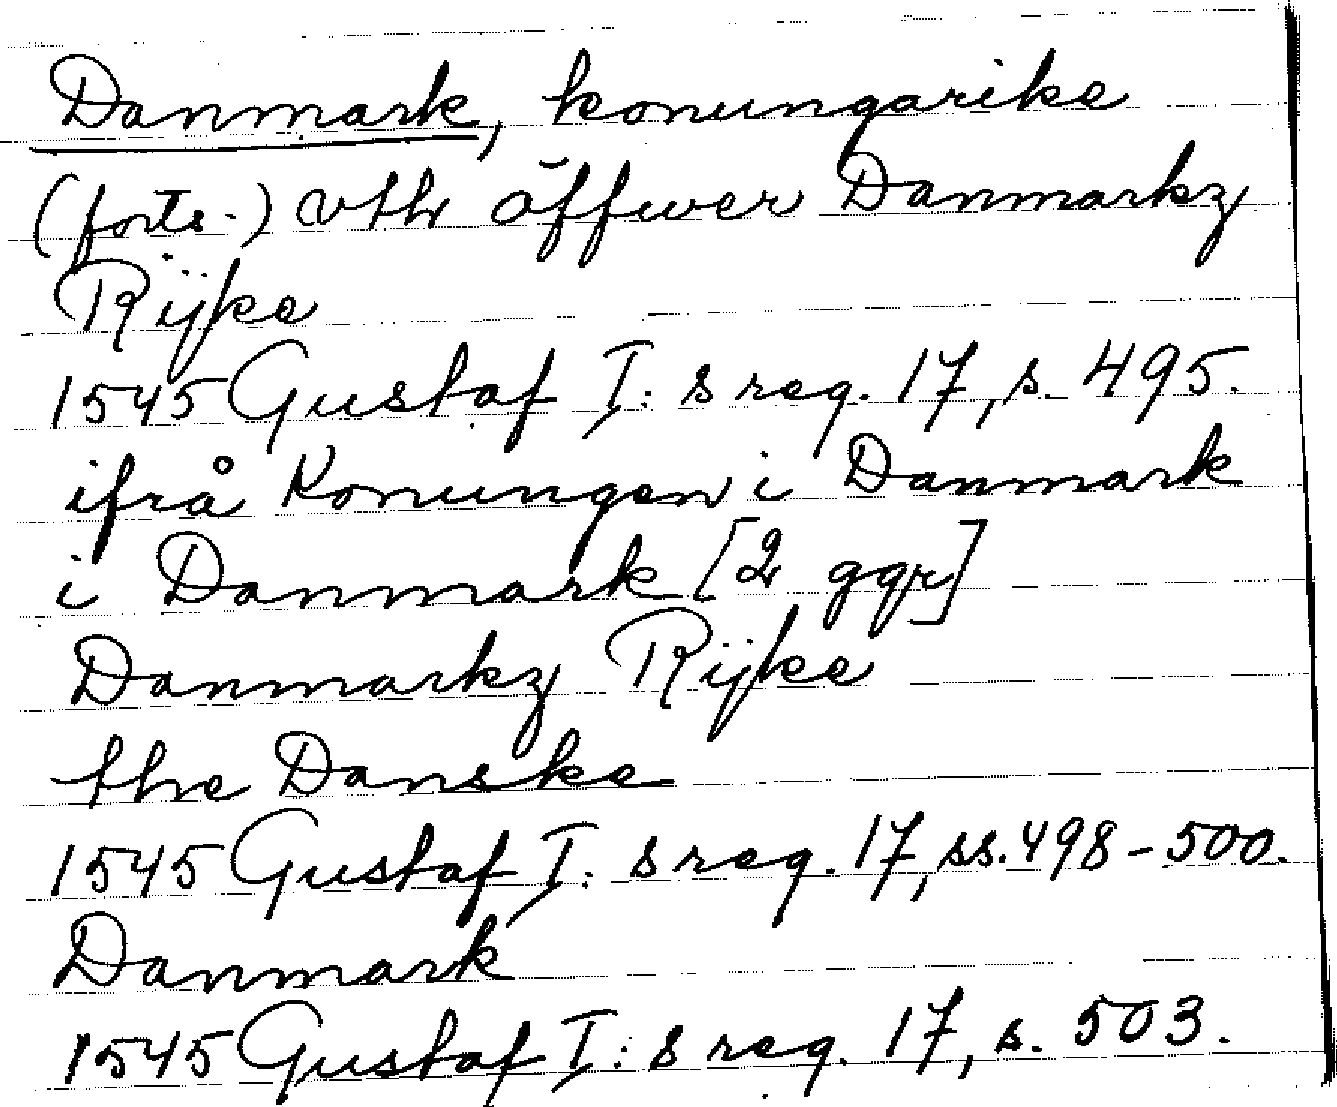 Danmark, konungarike
(forts.) vthr öffwer Danmarkz
Rÿke
1545 Gustaf I:s reg. 17, s. 495.
ifrå Konungen i Danmark
i Danmark [2 ggr]
Danmarkz Rijke
the Danske
1545 Gustaf I:s reg. 17, ss. 498-500.
Danmark
1545 Gustaf I:s reg. 17, s. 503.